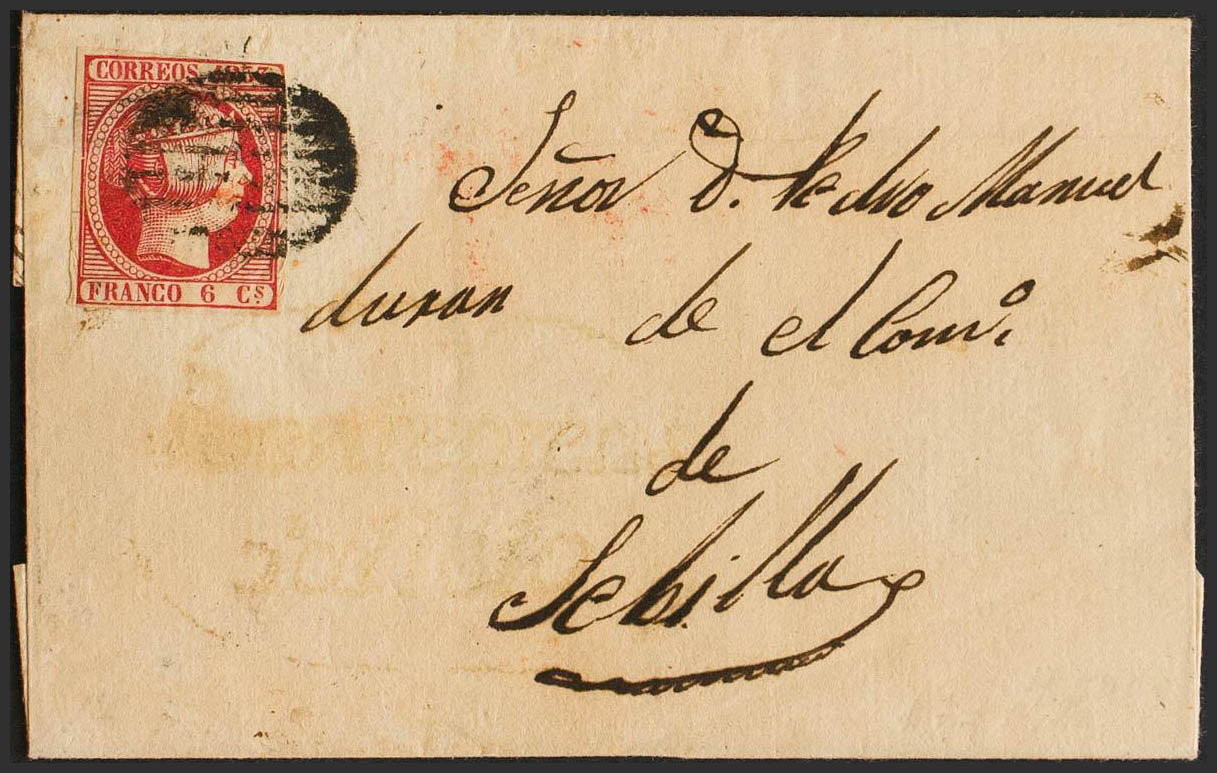 CORREOS 1853
FRANCO 6 Cs
Señor D. Pedro Manuel
duran de el Comº
de
Sebilla